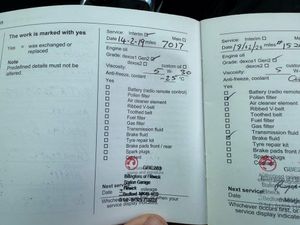 The work is marked with yes
Yes = was exchanged or replaced
Note
Predefined details must not be altered.
Service: Interim
Main
Date 14-2-19 miles 7017
Engine oil
Grade: dexos1 Gen2
dexos2
Viscosity: 5 30
Anti-freeze, coolant
-25 °C
Battery (radio remote control)
Pollen filter
Air cleaner element
Ribbed V-belt
Toothed belt
Fuel filter
Gas filter
Transmission fluid
Brake fluid
Tyre repair kit
Brake pads front / rear
Spark plugs
Next service
Date
Whichever
service display
Service: Interim
Date
Engine oil
Grade: dexos1 Gen2
dexos2
Viscosity: 5
Anti-freeze, coolant
Battery (radio remote
Pollen filter
Air cleaner element
Ribbed V-belt
Toothed belt
Fuel filter
Gas filter
Transmission fluid
Brake fluid
Tyre repair kit
Brake pads front /
Spark plugs
Next service:
Date
Whichever occurs first, or
service display indicates